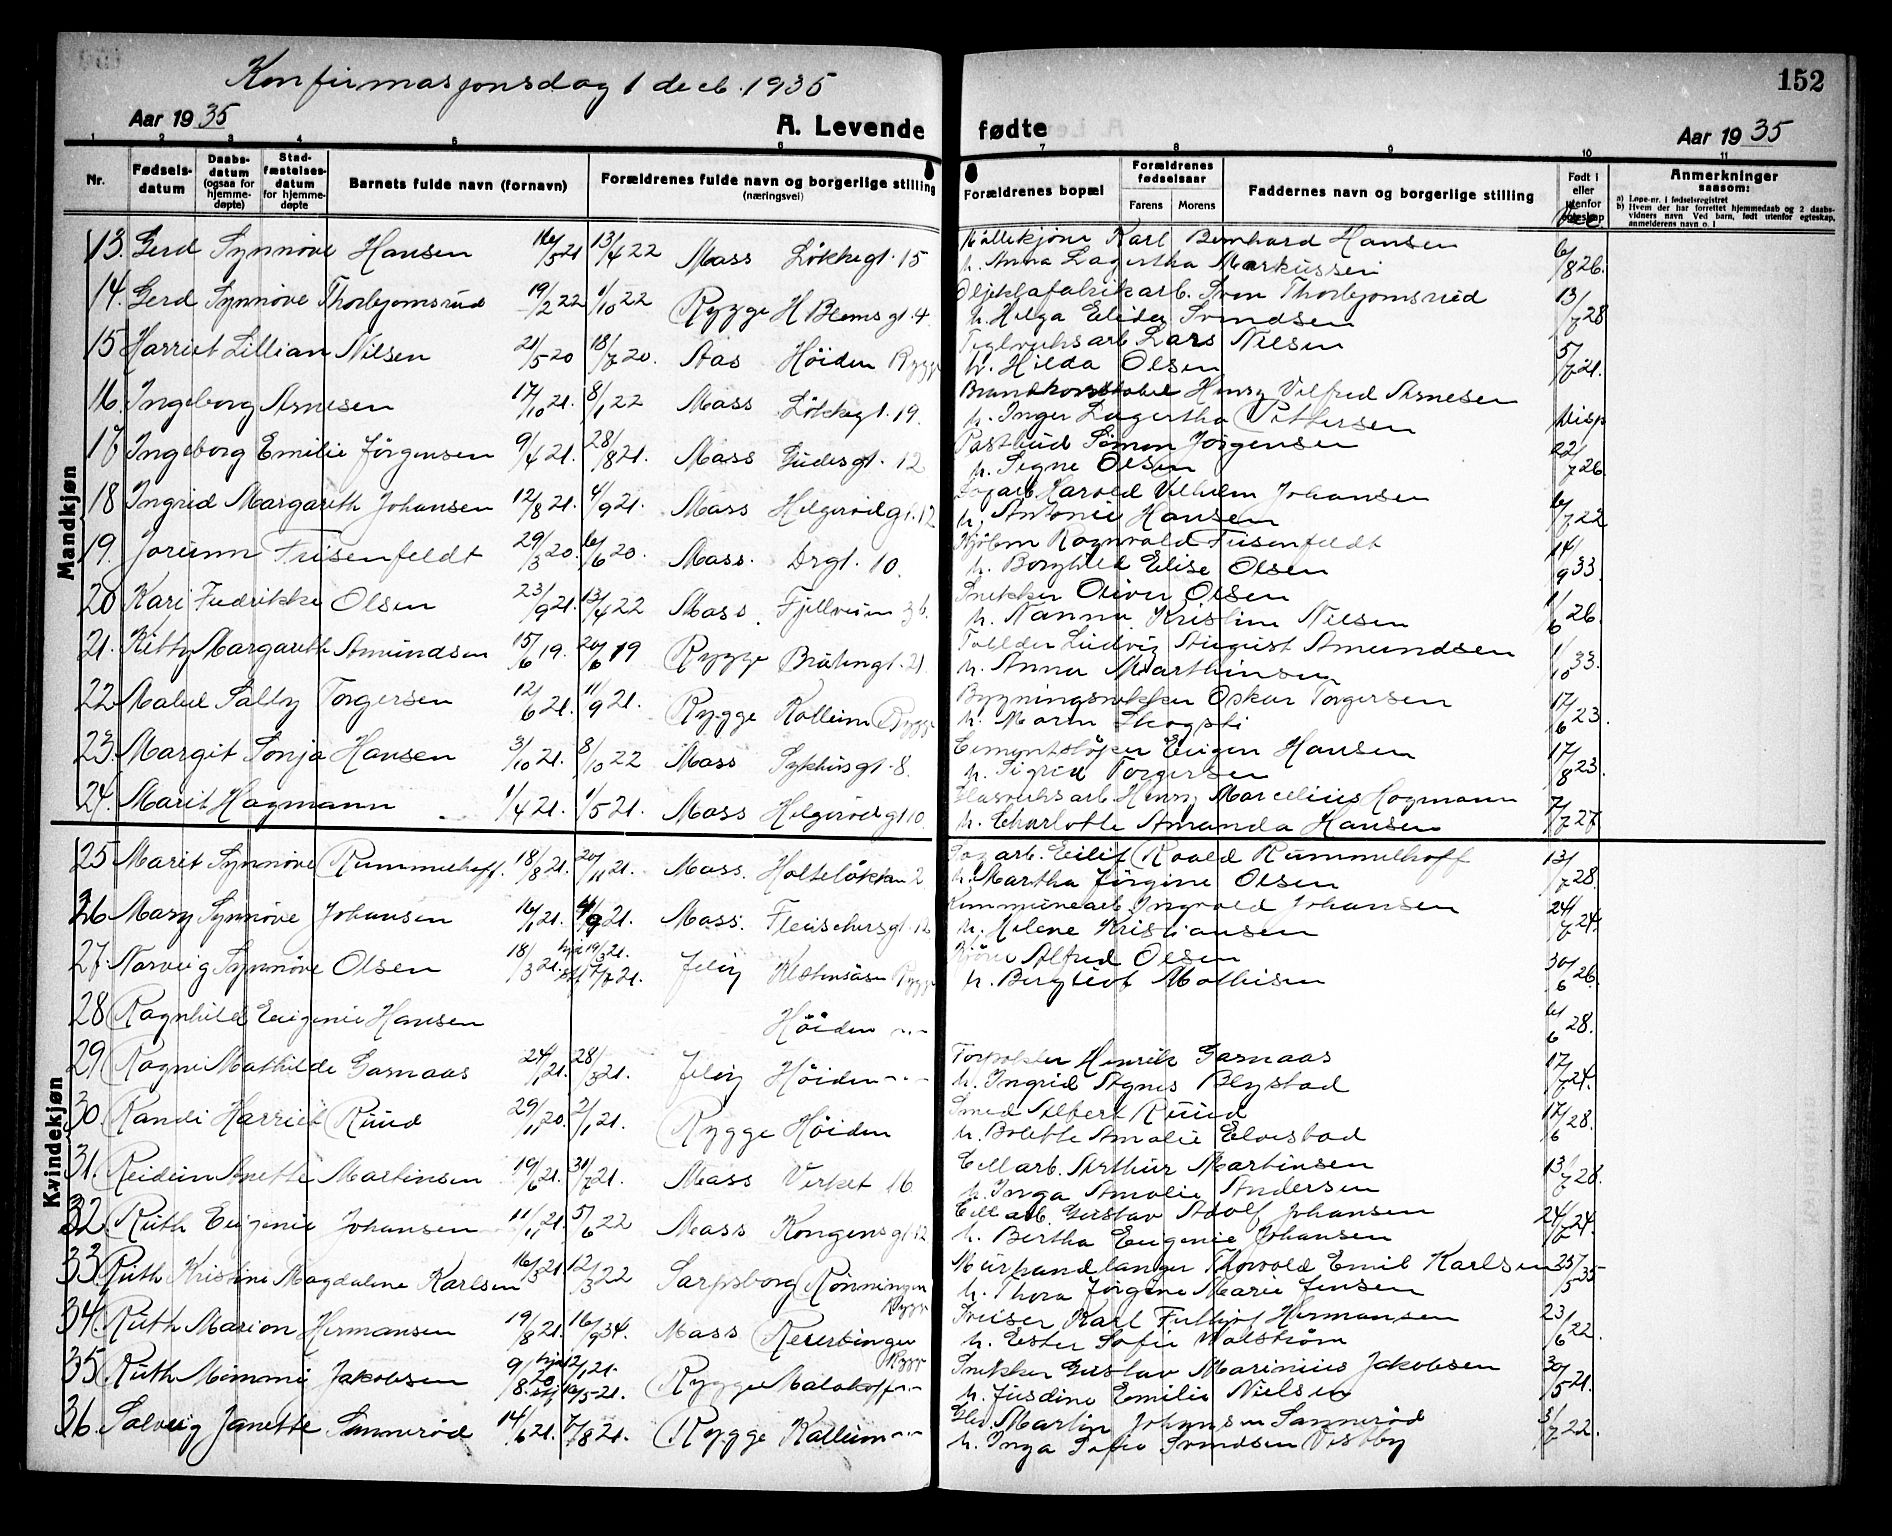 Konfirmasjonsdag 1 decb. 1935
152
Aar 1935
A. Levende fødte
Aar 1935
1 2 3 4 5 6 7 8 9 10 11
Nr.
Fødsels-datum
Daabs-datum (ogsaa for hjemme-døpte)
Stad-fæstelses-datum for hjemme-døpte
Barnets fulde navn (fornavn)
Forældrenes fulde navn og borgerlige stilling (næringsvei)
Forældrenes bopæl
Forældrenes fødselsaar
Farens Morens
Faddernes navn og borgerlige stilling
Født i eller utenfor egteskap
Anmerkninger saasom:
a) Løpe-nr. i fødselsregistret
b) Hvem der har forrettet hjemmedaab og 2 daabs-vidners navn. Ved barn, født utenfor egteskap, anmelderens navn o. l
Mandkjøn
13. Gerd Synnøve Hansen 16/5 21 13/4 22 Moss Løkkegt. 15 Karl Bernhard Hansen 6/8 26.
h. Anna Lagertha Markussen
14. Gerd Synnøve Thorbjørnsrud 19/2 22 1/10 22 Rygge H Blomsgt. 4 Sven Thorbjørnsrud 13/7 28
h. Helga Elida Svendsen
15 Harriet Lillian Nilsen 21/5 20 18/7 20. Aas Høiden Rygge Teglverksarb Lars Nilsen 5/7 21.
h. Hilda Olsen
16. Ingeborg Arnesen 17/10 21. 8/1 22 Moss Løkkegt. 19. Brandkonstabel Henry Vilfred Arnesen
h. Inger Lagertha Pettersen Disp
17 Ingeborg Emilie Jørgensen 9/4 21. 28/8 21. Moss Gudesgt. 12 Postbud Simon Jørgensen 22/7 26
h. Signe Olsen
18 Ingrid Margarith Johansen 12/8 21. 4/9 21. Moss Helgerødgt. 12 Sagarb. Harald Vilhelm Johansen 6/7 22
h. Antonie Hansen
19. Jorunn Friisenfeldt 29/3 20. 6/6 20. Moss. Drgt. 10. Ragnvald Friisenfeldt 14/9 33.
h. Borghild Elise Olsen
20 Kari Fredrikke Olsen 23/9 21. 13/4 22 Moss. Fjellveien 36. Snekker Oliver Olsen 1/6 26.
h. Nanna Kristine Nilsen
21. Kitty Margarethe Amundsen 15/6 19. 20/6 19 Rygge Bråtengt. 21. Ludvig August Amundsen 1/10 33.
h. Anna Marthinsen
22 Mabel Sally Torgersen 12/6 21. 11/9 21. Rygge Kalleim Rygge Oskar Torgersen 17/6 23.
h. Marn Skogsli
23. Margit Sonja Hansen 3/10 21. 8/10 22 Moss Sykhusgt. 8. Eugen Hansen 17/8 23.
h. Sigrid Torgersen
24. Marit Hagmann 1/4 21. 1/5 21. Moss Helgerødgt 10. Glasverksarb Henry Marcelius Hagmann 7/7 27
h. Charlotte Amanda Hansen
25 Marit Synnøve Rummelhoff. 18/8 21. 20/11 21. Moss. Holteløkken 2. Sagarb. Eilif Roald Rummelhoff 13/7 28.
h. Martha Jørgine Olsen
26 Mary Synnøve Johansen 16/1 21. 4/9 21. Moss. Fleischersgt. 12 Kommunearb. Ingvald Johansen 24/7 24.
h. Helene Kristiansen
27. Norveig Synnøve Olsen 18/3 21. hjd 19/3 21. 17/7 21. Jeløy Rygge Alfred Olsen 30/6 26.
h. Bergliot Mathisen
28 Ragnhild Eugenie Hansen Høiden -"- 6/6 28.
Kvindekjøn
29 Ragni Mathilde Garnaas 24/1 21. 28/3 21. Jeløy Høiden -"- Henrik Garnaas 17/7 24.
h. Ingrid Agnes Blystad
30. Randi Harriet Ruud 29/11 20. 2/1 21. Rygge Høiden Smed Albert Ruud 17/6 28.
h. Bolette Amalie Elvestad
31. Reidun Anette Martinsen 19/6 21. 31/7 21. Moss Verket 16. Cellarb. Arthur Martinsen 13/7 28.
h. Inga Amalie Andersen
32. Ruth Eugenie Johansen 11/11 21. 5/6 22 Moss Kongensgt 12 Cellarb. Gustav Adolf Johansen 24/7 24.
h. Bertha Eugenie Johansen
33 Ruth Kristine Magdalene Karlsen 16/3 21. 12/3 22 Sarpsborg Rønningen Rygge Murhandlanger Thorvald Emil Karlsen 25/5 35
h. Thora Jørgine Marie Jensen
34 Ruth Marion Hermansen 19/8 21. 16/9 34. Moss Rygge Karl Fritjof Hermansen 23/6 22.
h. Ester Sofie Walstrøm
35 Ruth Mimmi Jakobsen 9/8 20. hjd 12/1 21. 16/5 21. Rygge Malakoff -"- Snekker Gustav Marinius Jakobsen 30/5 21.
h. Jusdine Emilie Nielsen
36. Solveig Janette Sannerød 14/6 21. 7/8 21. Rygge Kalleim -"- Martin Johansen Sannerød 3/7 22.
h. Inga Sofie Svendsen Vestby